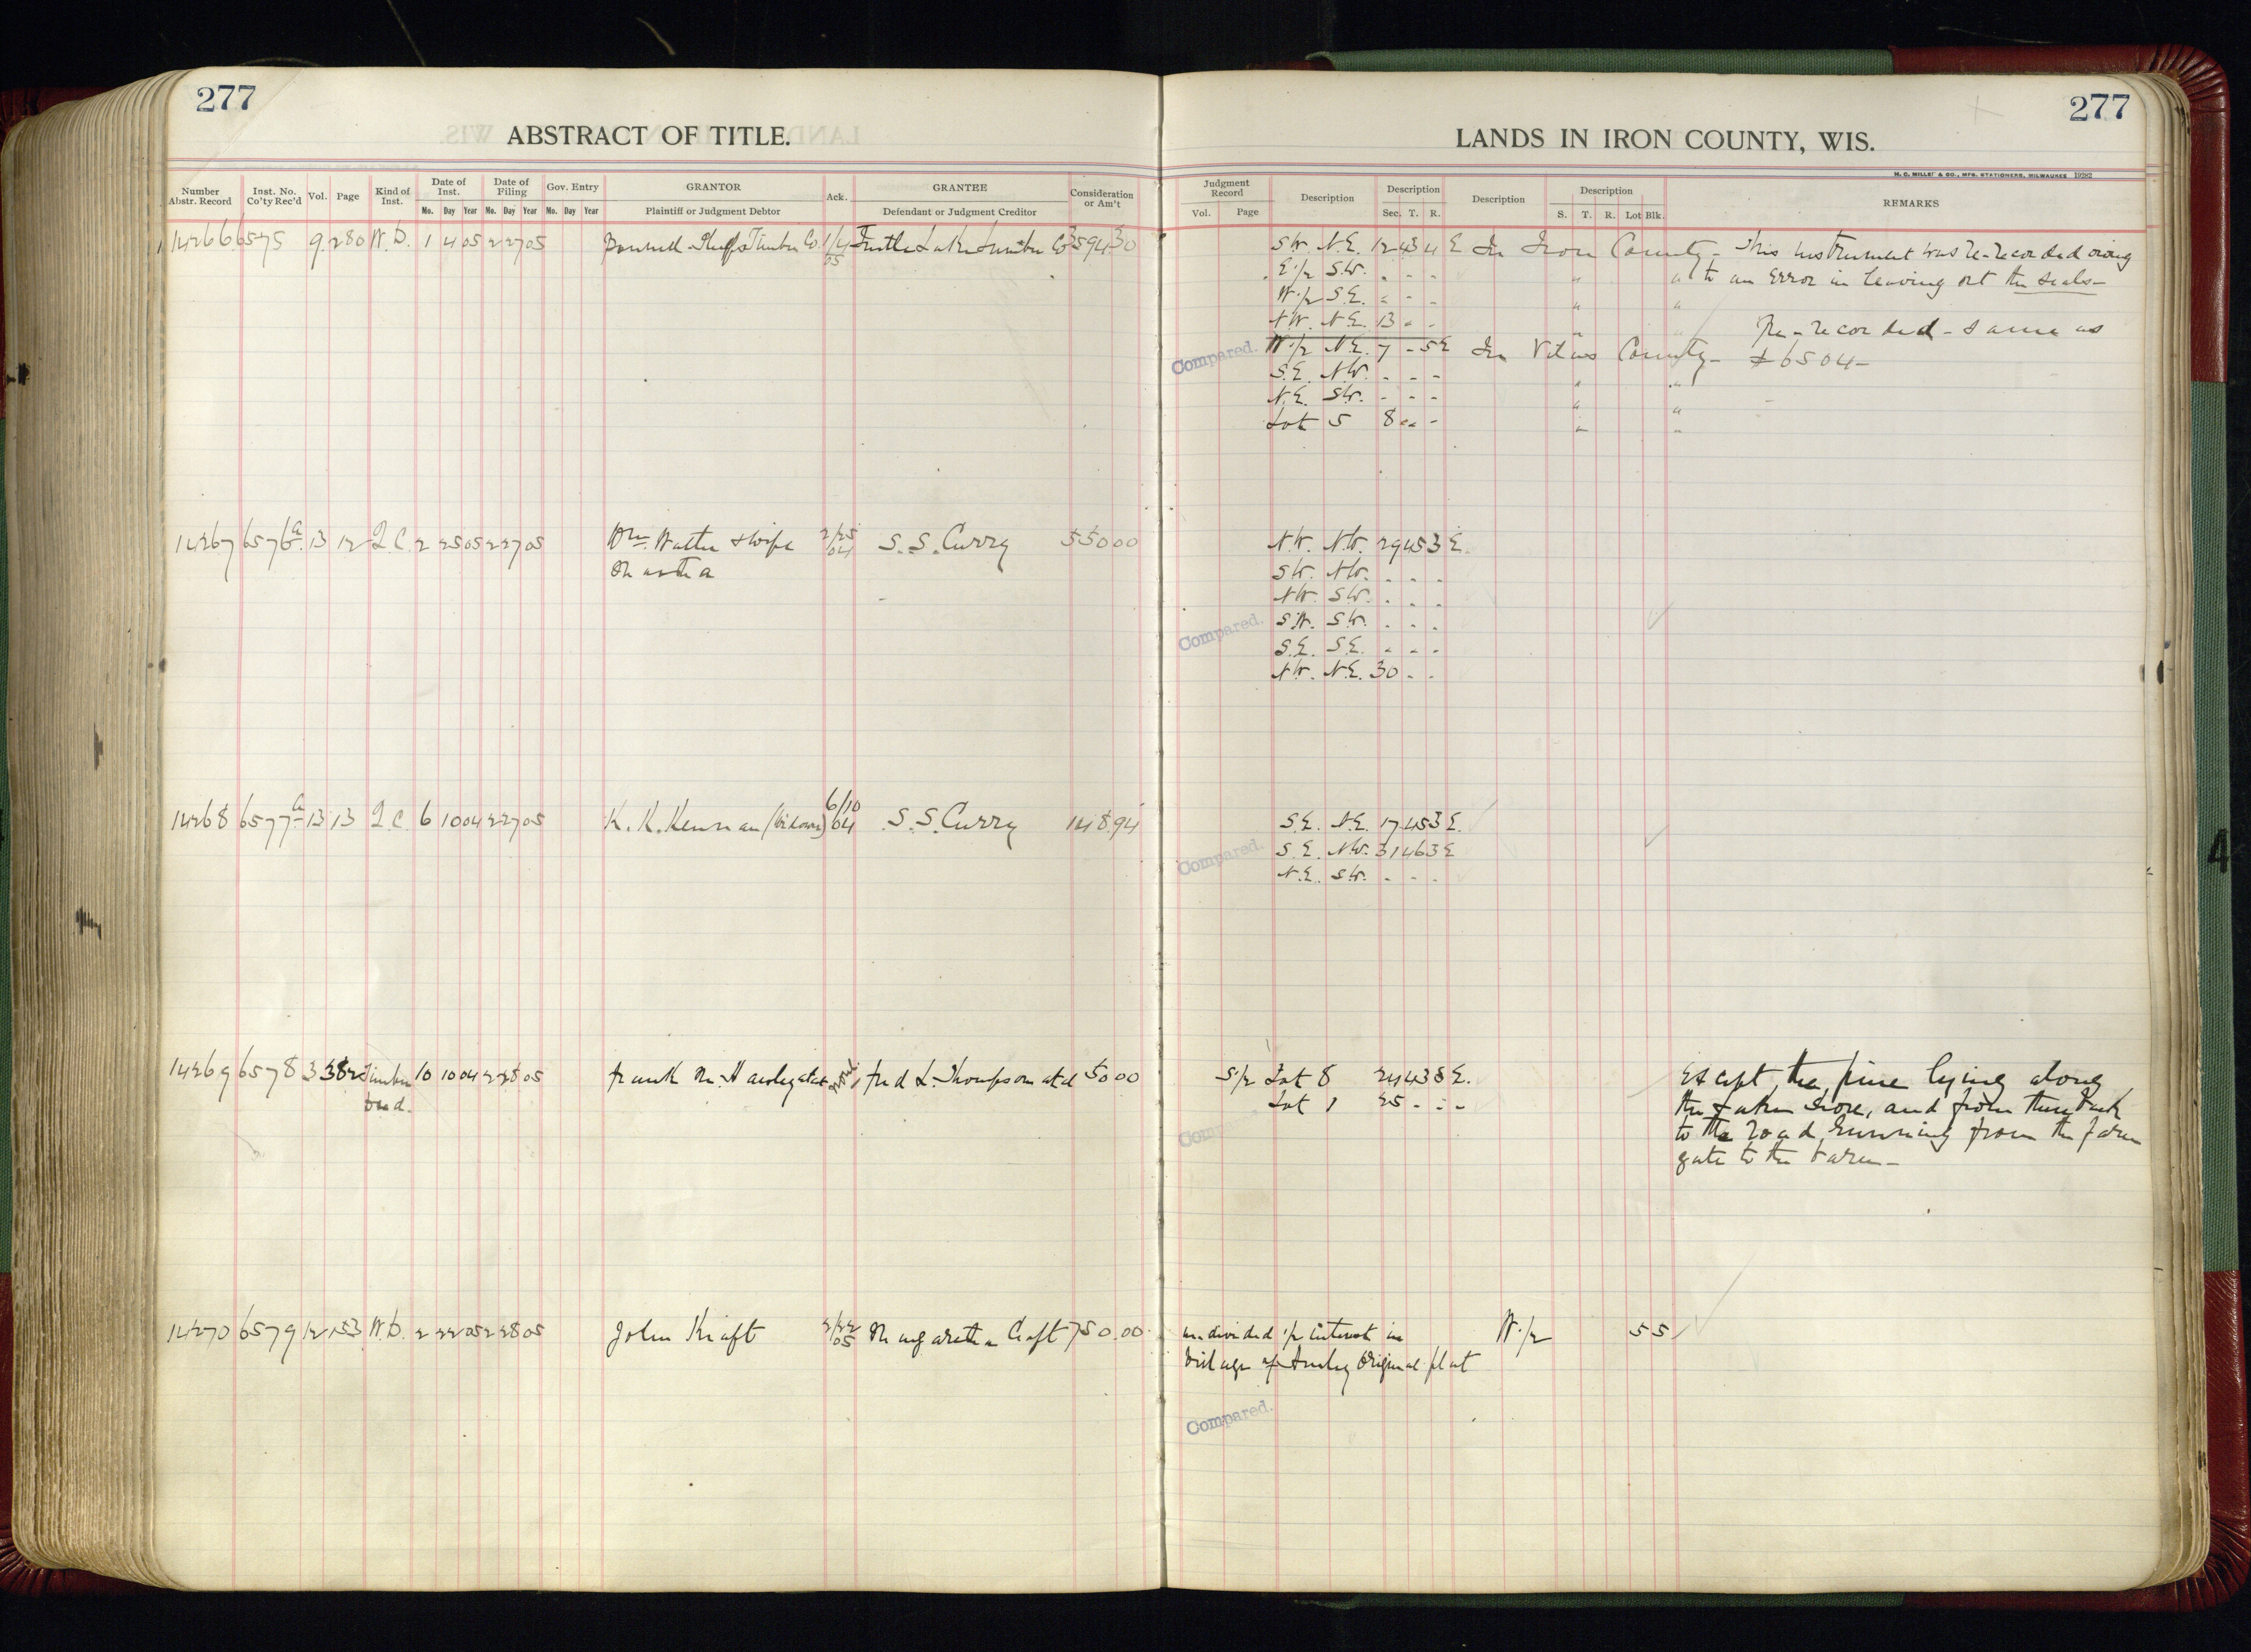 277
ABSTRACT OF TITLE.
Number Abstr. Record
Inst. No. Co'ty Rec'd
Vol.
Page
Kind of Inst.
Date of Inst.
Mo. Day Year
Date of Filing
Mo. Day Year
Gov. Entry
Mo. Day Year
GRANTOR
Plaintiff or Judgment Debtor
Ack.
GRANTEE
Defendant or Judgment Creditor
Consideration or Am't
14266 6575 9 280 W.D. 1 4 05 2 27 05 Timber Co. 1/4 05 Turtle Lake Lumber Co 3594.30
14267 6576 a 13 12 Q.C. 2 25 05 2 27 05 Wm Walter & wife 2/25 04 S.S. Curry 550 00
Martha
14268 6577 a 13 13 Q.C. 6 10 04 2 27 05 K.K. Kennan (Widower) 6/10 04 S.S. Curry 148.94
14269 6578 3 382 Timber 10 10 04 2 28 05 Frank M. none Fred L. Thompson et al 50 00
Deed.
14270 6579 12 153 W.D. 2 22 05 2 28 05 John Kraft 2/22 05 Margaretha Craft 750.00
277
LANDS IN IRON COUNTY, WIS.
H. C. MILLER CO., MFG. STATIONERS, MILWAUKEE 19282
Judgment Record
Vol. Page
Description
Description
Sec. T. R.
Description
Description
S. T. R. Lot Blk.
REMARKS
S.W. N.E. 12 43 4 E In Iron County - This instrument was re-recorded owing
E 1/2 S.W. " " " " " to an Error in leaving out the seals -
W 1/2 S.E. " " " " "
N.W. N.E. 13 " " " Re-recorded - same as
Compared. W 1/2 N.E. 7 - 5 E In Vilas County - # 6504 -
S.E. N.W. - - - " "
N.E. S.W. - - - " "
Lot 5 8 " - " "
N.W. N.W. 29 45 3 E.
S.W. N.W. - - -
N.W. S.W. - - -
Compared. S.W. S.W. - - -
S.E. S.E. - - -
N.W. N.E. 30 - -
S.E. N.E. 17 45 3 E.
Compared. S.E. N.W. 31 46 3 E
N.E. S.W. - - -
S 1/2 Lot 8 24 43 5 E. Except, the pine lying along
Lot 1 25 - - - the Lake shore, and from there back
Compared. to the road, running from the farm
gate to the barn -
undivided 1/2 interest in W 1/2 5 5
Village of Hurley Original plat
Compared.